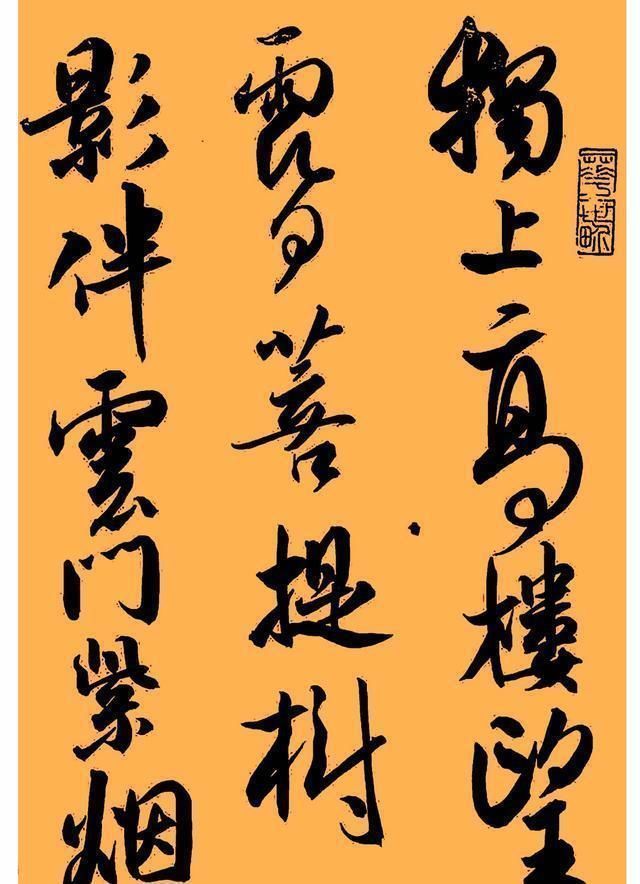 獨上高樓望
菩提樹
影伴雲門紫烟